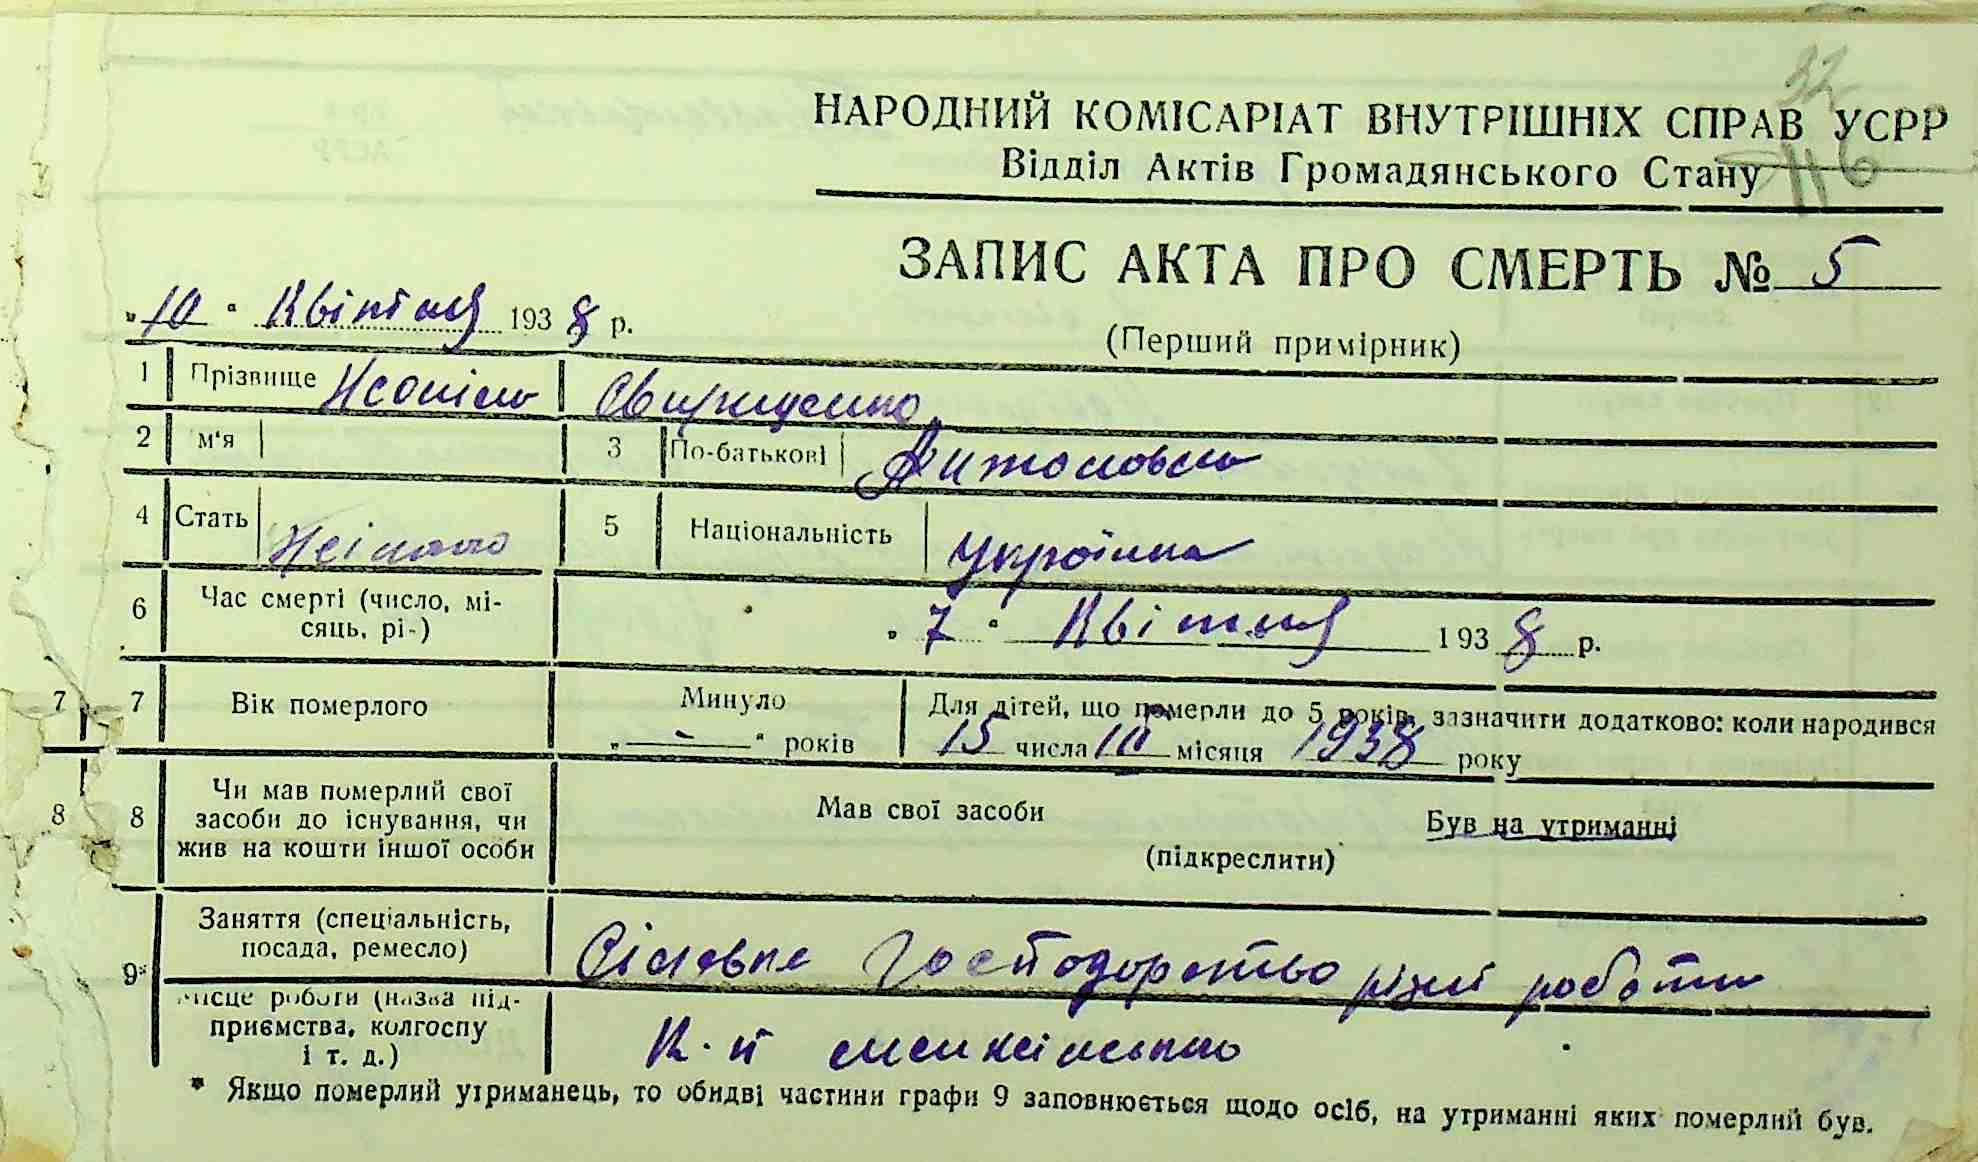 32
НАРОДНИЙ КОМІСАРІАТ ВНУТРІШНІХ СПРАВ УСРР
Відділ Актів Громадянського Стану 116
ЗАПИС АКТА ПРО СМЕРТЬ № 5
„10“ Квітня 1938 р.
(Перший примірник)
1 Прізвище Свириденко
2 м'я 3 По-батькові Антоновна
4 Стать Жіноча 5 Національність Українка
6 Час смерті (число, мі-
сяць, рі-)
„7“ Квітня 1938 р.
7 7 Вік померлого Минуло „—“ років Для дітей, що померли до 5 років, зазначити додатково: коли народився
15 числа III місяця 1938 року
8 8 Чи мав померлий свої
засоби до існування, чи
жив на кошти іншої особи
Мав свої засоби Був на утриманні
(підкреслити)
9* Заняття (спеціальність,
посада, ремесло)
Сільське Господарство різні роботи
місце роботи (назва під-
приємства, колгоспу
і т. д.)
* Якщо померлий утриманець, то обидві частини графи 9 заповнюється щодо осіб, на утриманні яких померлий був.